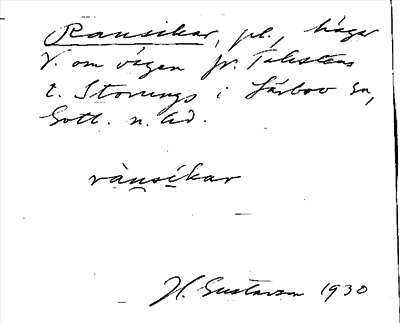 Ransikar, pl., hagar
V. om vägen fr. Takstens
t. Storungs i Lärbro sn,
Gotl. n. hd.
rànsíkar
H. Gustavson 1930